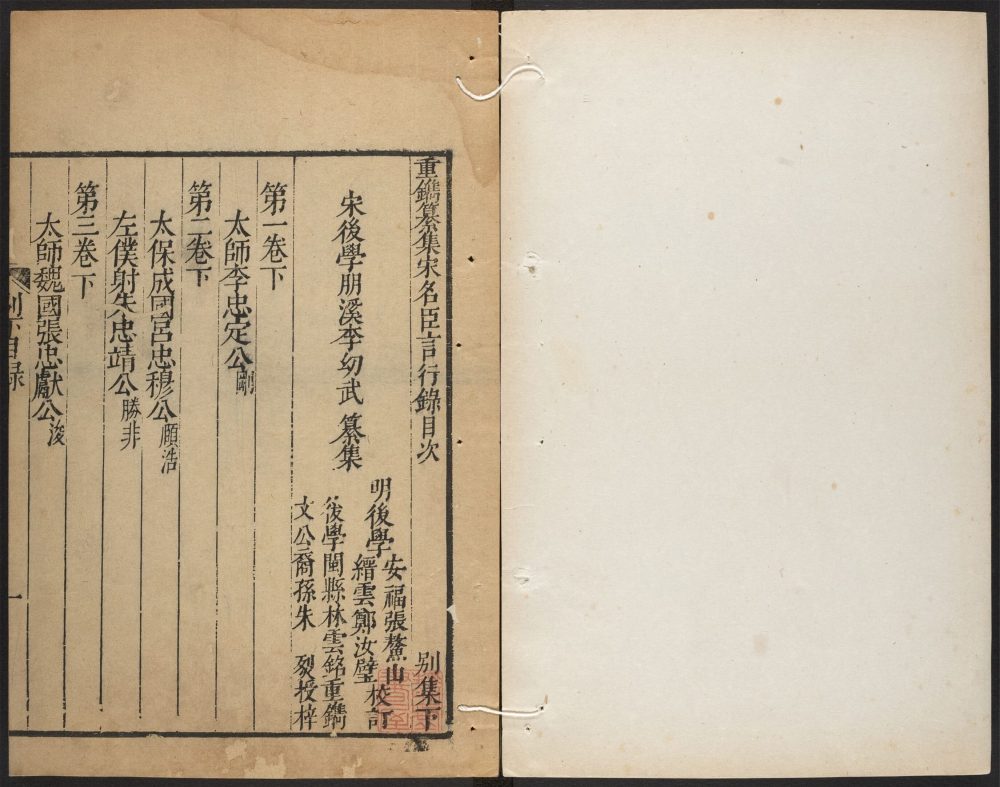 重鐫纂集宋名臣言行錄目次 別集下
宋後學朋溪李幼武 纂集
明後學
安福張鰲山
縉雲鄭汝璧
校訂
後學閩縣林雲銘重鐫
文公裔孫朱 烈授梓
第一卷下
太師李忠定公剛
第二卷下
太保成國呂忠穆公頤浩
左僕射朱忠靖公勝非
第三卷下
太師魏國張忠獻公浚
別下目録
一